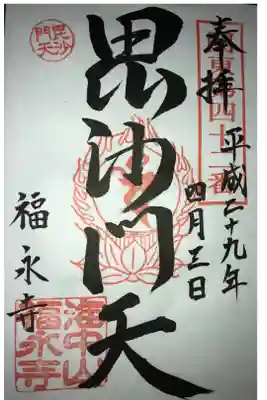 奉拝
平成二十九年
四月三日
毘沙門天
福永寺
毘沙
門天
海中山
福永寺